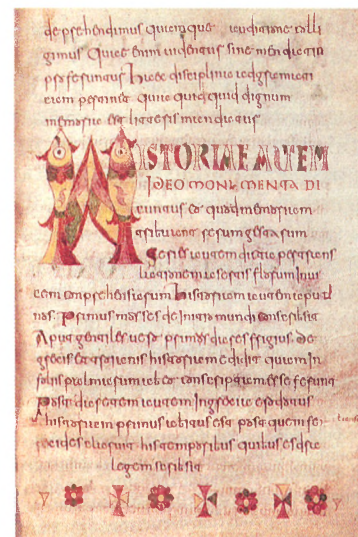 deprehendimus quam que auditione colli
gimus Quae enim uidentur sine mendatio
proferuntur haec disciplina ad gramati
cam pertinet quia quidquid dignum
memoria est litteris mandatur
HISTORIAE AUTEM
IDEO MONUMENTA DI
cuntur eo quod memoriam
tribuant rerum gestarum
Series autem dicta per trans
lationem a sertis florum inui
cem conprehensarum historiam autem aput
nos primus moses de initio mundi conscribsit
Aput gentiles uero primus dares frigius de
grecis et troianis historiam edidit quam in
foliis palmarum ab eo conscriptam esse ferunt
Post daretem autem in grecia erodotus
historiam primus habitus est post quem fe
recides claruit his temporibus quibus esdras
legem scribsit